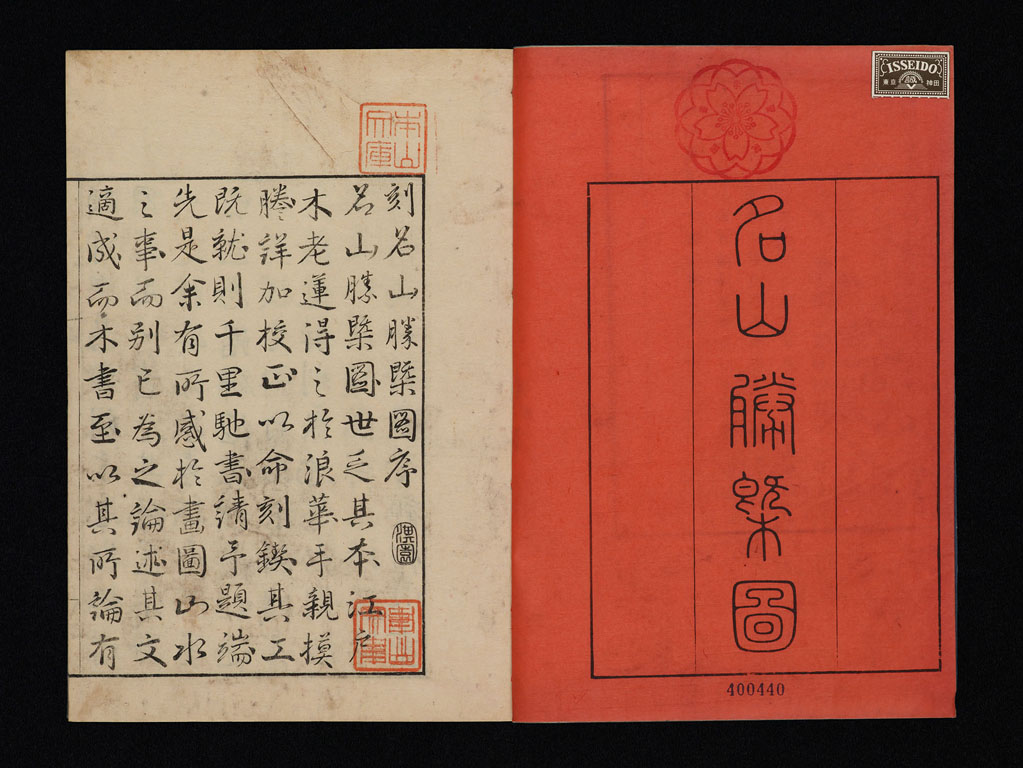 ISSEIDO
東京 神田
名山勝槩圖
400440
刻名山勝槩圖序
淇園
名山勝槩圖世乏其本江戶
木老蓮得之於浪華手親摸
謄詳加校正以命刻鍥其工
既就則千里馳書請予題端
先是余有所感於畫圖山水
之事而別已為之論述其文
適成而木書至以其所論有